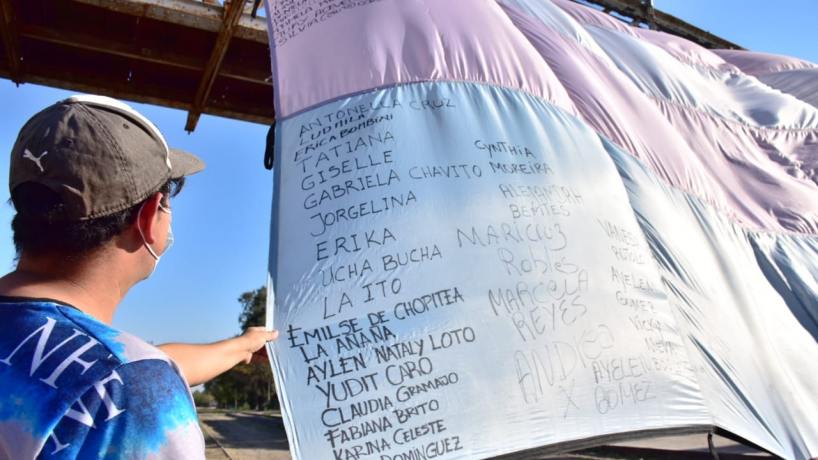 ANTONELLA CRUZ
LUDMILA
ERICA BOMBINI
TATIANA
GISELLE
GABRIELA CHAVITO
JORGELINA
ERIKA
UCHA BUCHA
LA ITO
EMILSE DE CHOPITEA
LA ANANA
AYLEN NATALY LOTO
YUDIT CARO
CLAUDIA GRAMAJO
FABIANA BRITO
KARINA CELESTE
DOMÍNGUEZ
CYNTHIA
MOREIRA
BENITES
MARICRUZ
Robles
MARCELA
REYES
X
AYELEN
GOMEZ
VICKY
AYELEN
GOMEZ
NHT